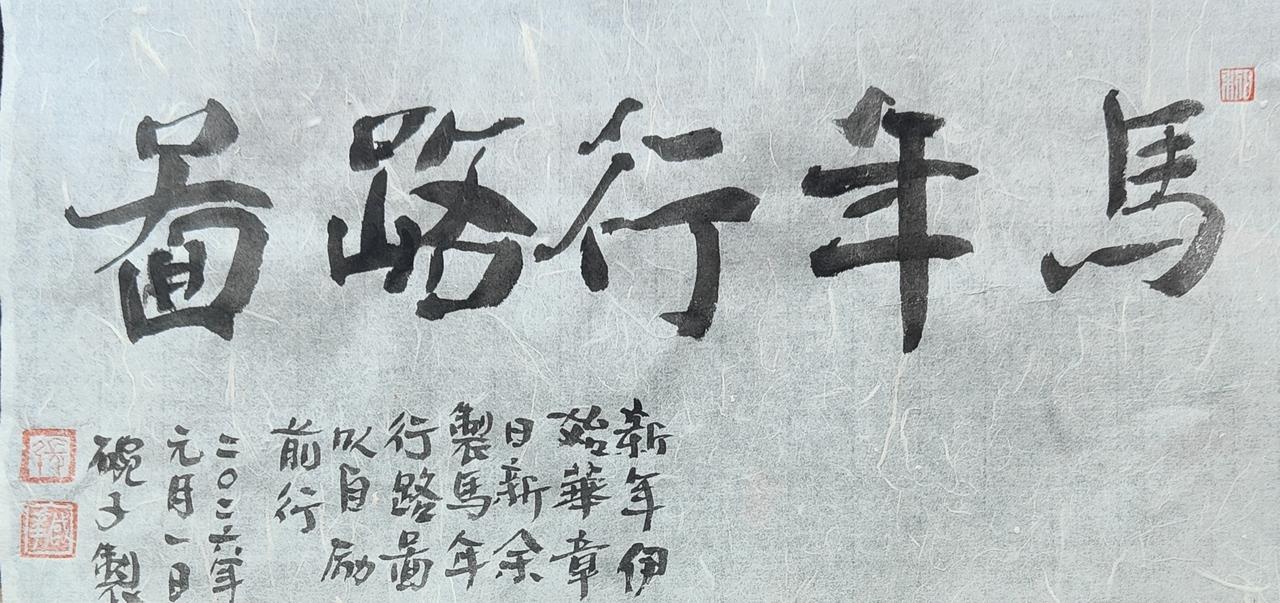 馬年行路圖
新年伊
始華章
日新余
製馬年
行路圖
以自勵
前行
二〇二六年
元月一日
碗子製